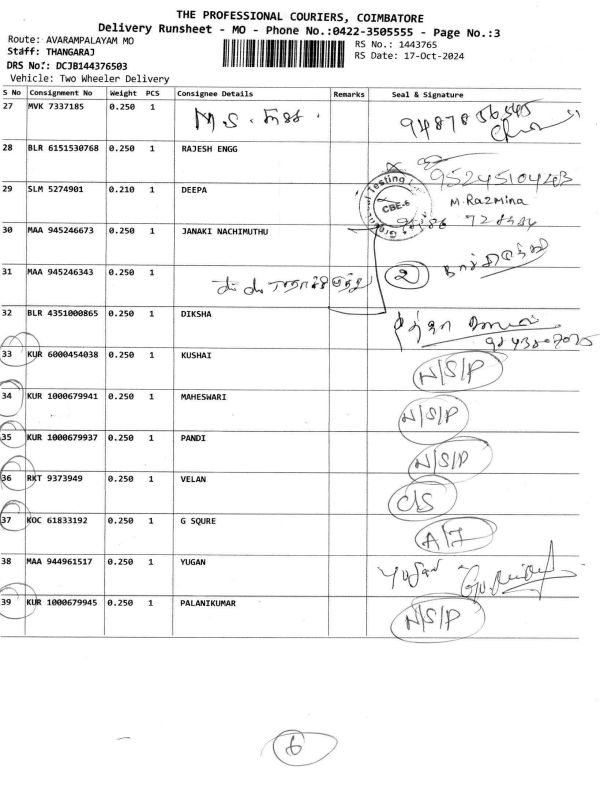 THE PROFESSIONAL COURIERS, COIMBATORE
Delivery Runsheet - MO - Phone No.:0422-3505555 - Page No.:3
Route: AVARAMPALAYAM MO
RS No.: 1443765
Staff: THANGARAJ
RS Date: 17-Oct-2024
DRS No.: DCJB144376503
Vehicle: Two Wheeler Delivery
S No Consignment No Weight PCS Consignee Details Remarks Seal & Signature
27 MVK 7337185 0.250 1 M.S.
28 BLR 6151530768 0.250 1 RAJESH ENGG
29 SLM 5274901 0.210 1 DEEPA CBE-6 M. Razmina
30 MAA 945246673 0.250 1 JANAKI NACHIMUTHU
31 MAA 945246343 0.250 1 2
32 BLR 4351000865 0.250 1 DIKSHA
33 KUR 6000454038 0.250 1 KUSHAI N/S/P
34 KUR 1000679941 0.250 1 MAHESWARI N/S/P
35 KUR 1000679937 0.250 1 PANDI N/S/P
36 RKT 9373949 0.250 1 VELAN C/S
37 KOC 61833192 0.250 1 G SQURE
38 MAA 944961517 0.250 1 YUGAN
39 KUR 1000679945 0.250 1 PALANIKUMAR N/S/P
6